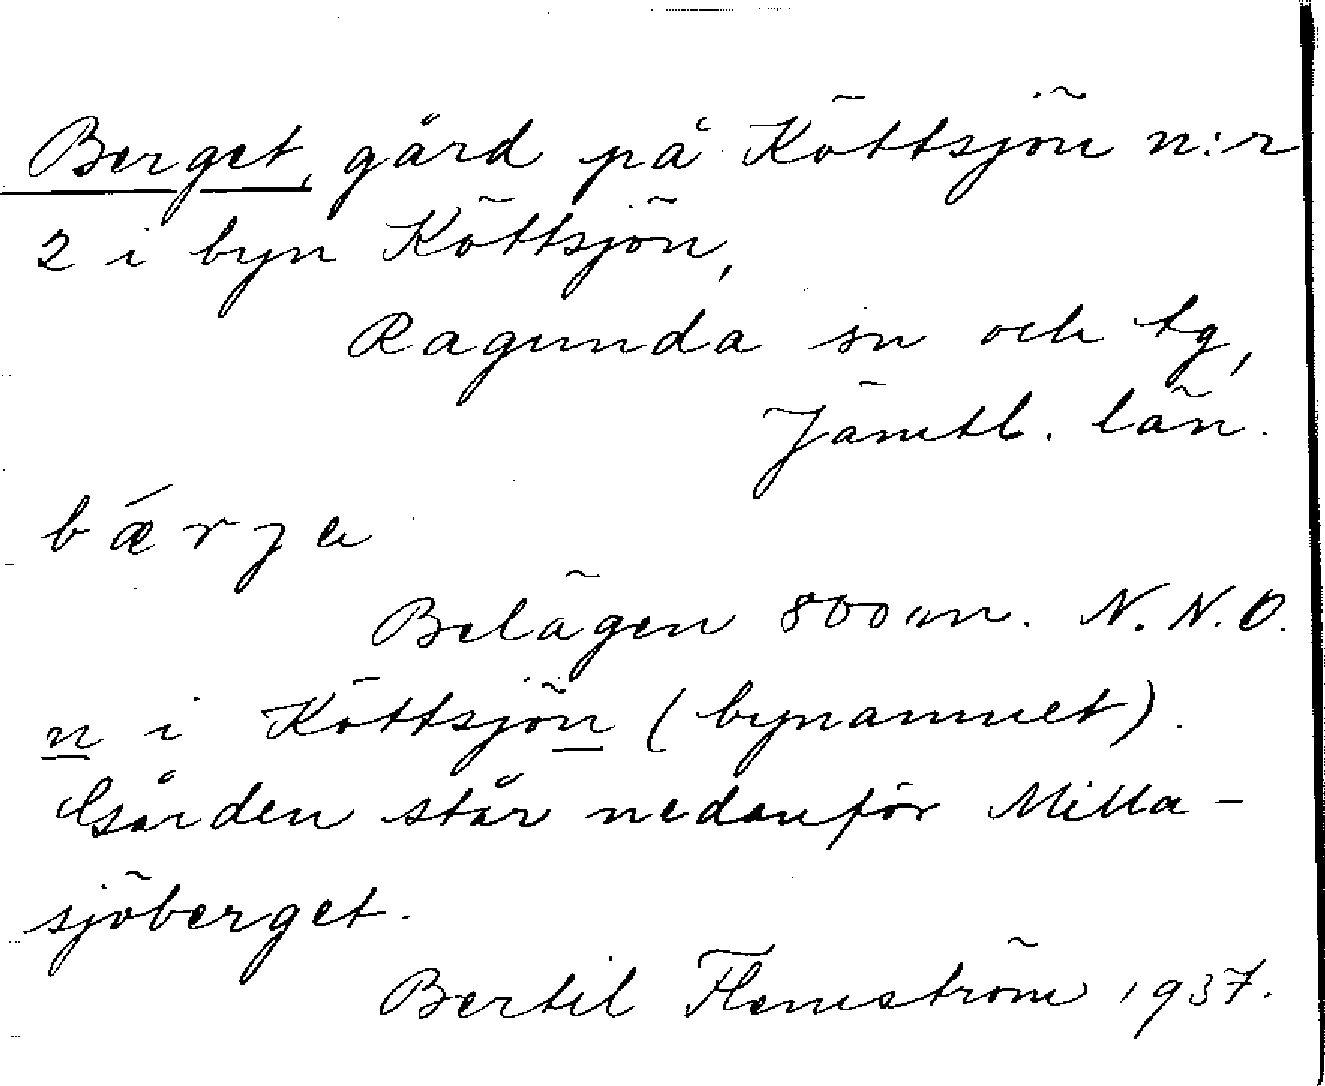 Berget, gård på Köttsjön n:r
2 i byn Köttsjön,
Ragunda sn och tg,
Jämtl. län.
bǽrjɐ
Belägen 800 m. N.N.O.
n i Köttsjön (bynamnet).
Gården står nedanför Milla-
sjöberget.
Bertil Flemström 1937.